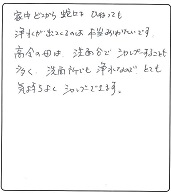 家中どこから蛇口をひねっても
浄水が出てくるのは本当ありがたいです。
高今の母は、洗面台でシャンプーすることも
多く、洗面所でも浄水なので、とても
気持ちよくシャンプーできます。